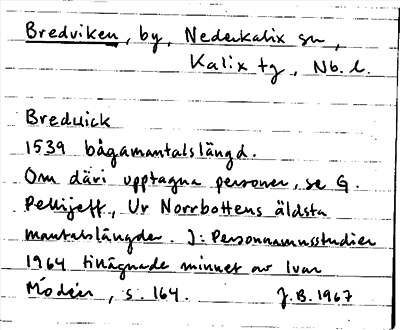 Bredviken, by, Nederkalix sn,
Kalix tg, Nb. l.
Breduick
1539 bågamantalslängd.
Om däri upptagna personer, se G.
Pellijeff, Ur Norrbottens äldsta
mantalslängder. I: Personnamnsstudier
1964 tillägnade minnet av Ivar
Modéer, s. 164. J.B. 1967